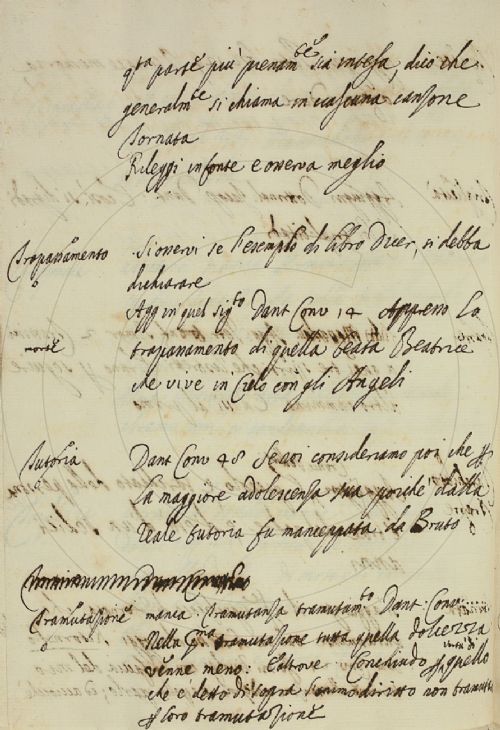 q.ta parte più pienam.te sia intesa, dico che
generalm.te si chiama in ciascuna canzone
Tornata
Rileggi in fonte e osserva meglio
Trapassamento
Si osservi se l'esemplo di libro Dicer, si debba
dichiarare
Agg in quel sig.to Dant Conv 14 Appresso lo
morte
trapassamento di quella beata Beatrice
che vive in Cielo con gli Angeli
Tutoria
Dant Conv 48 Se noi consideriamo poi che
la maggiore adolescenza sua poiche dalla
reale tutoria fu manceppata da Bruto
Tramutazione
manca. Tramutanza tramutam.to Dant. Conv.
Nella tramutazione tutta quella dolcezza
venne meno: E altrove Conchiudo quello
che e detto di sopra l'animo diritto non tramuta
loro tramutazione